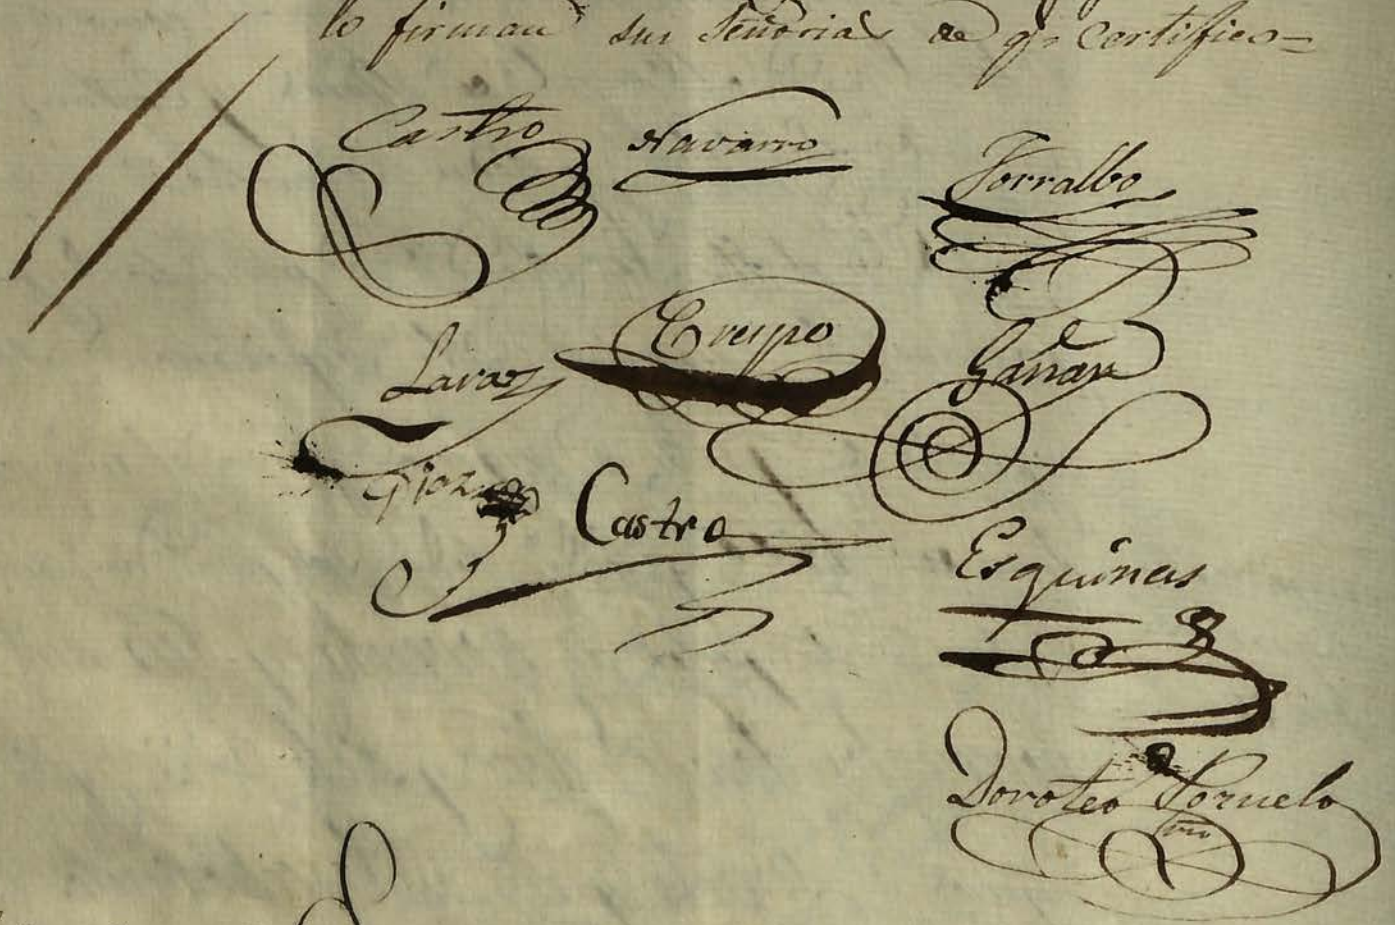 lo firman sus Señorias de q.e certifico=
Castro Navarro Torralbo
Lara Crespo Gañan
Castro
Esquinas
Doroteo Pozuelo
srio